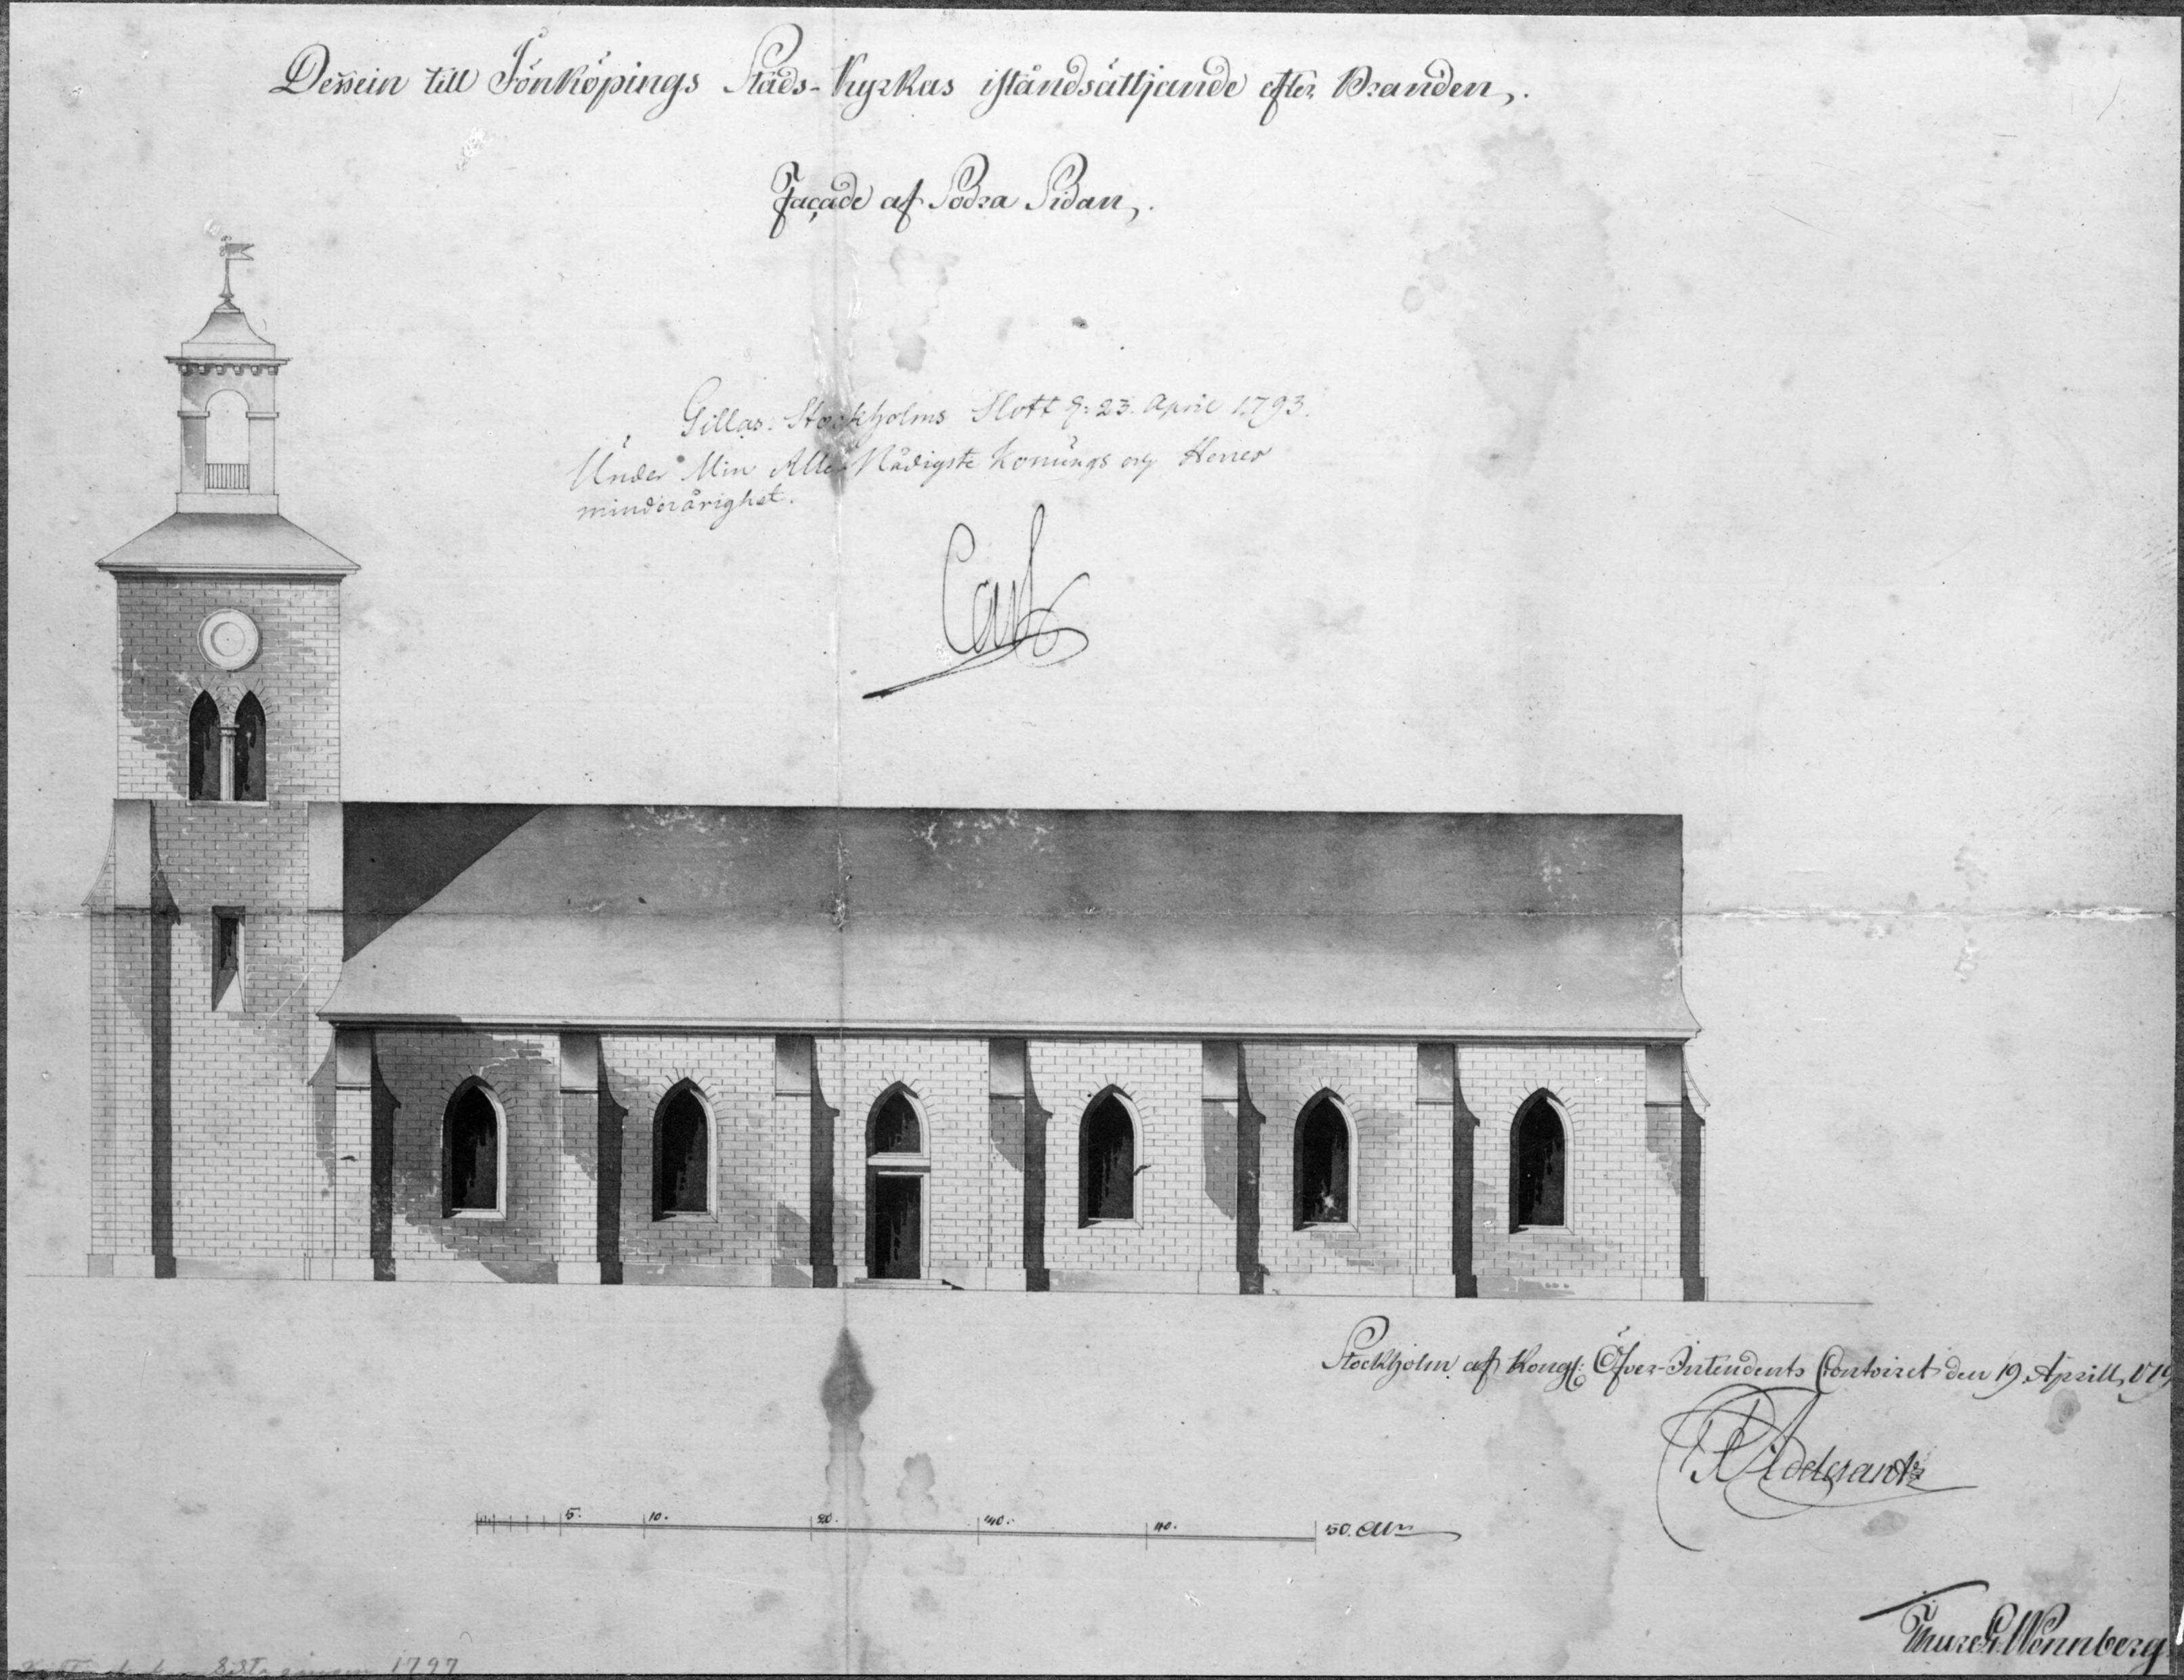 Dessein till Jönköpings Stads-Kyrkas iståndsättjande efter Branden,.
Façade af Södra Sidan,.
Gillas. Stockholms Slott d: 23. April 1793.
Under Min Aller Nådigste Konungs och Herres
minderårighet.
Carl
Stockholm af Kongl: Öfver-Intendents Contoiret den 19 Aprill, 179
Adelcrantz
5. 10. 20. 40. 40. 50. Aln
Thure G. Wennberg
sista gången 1797